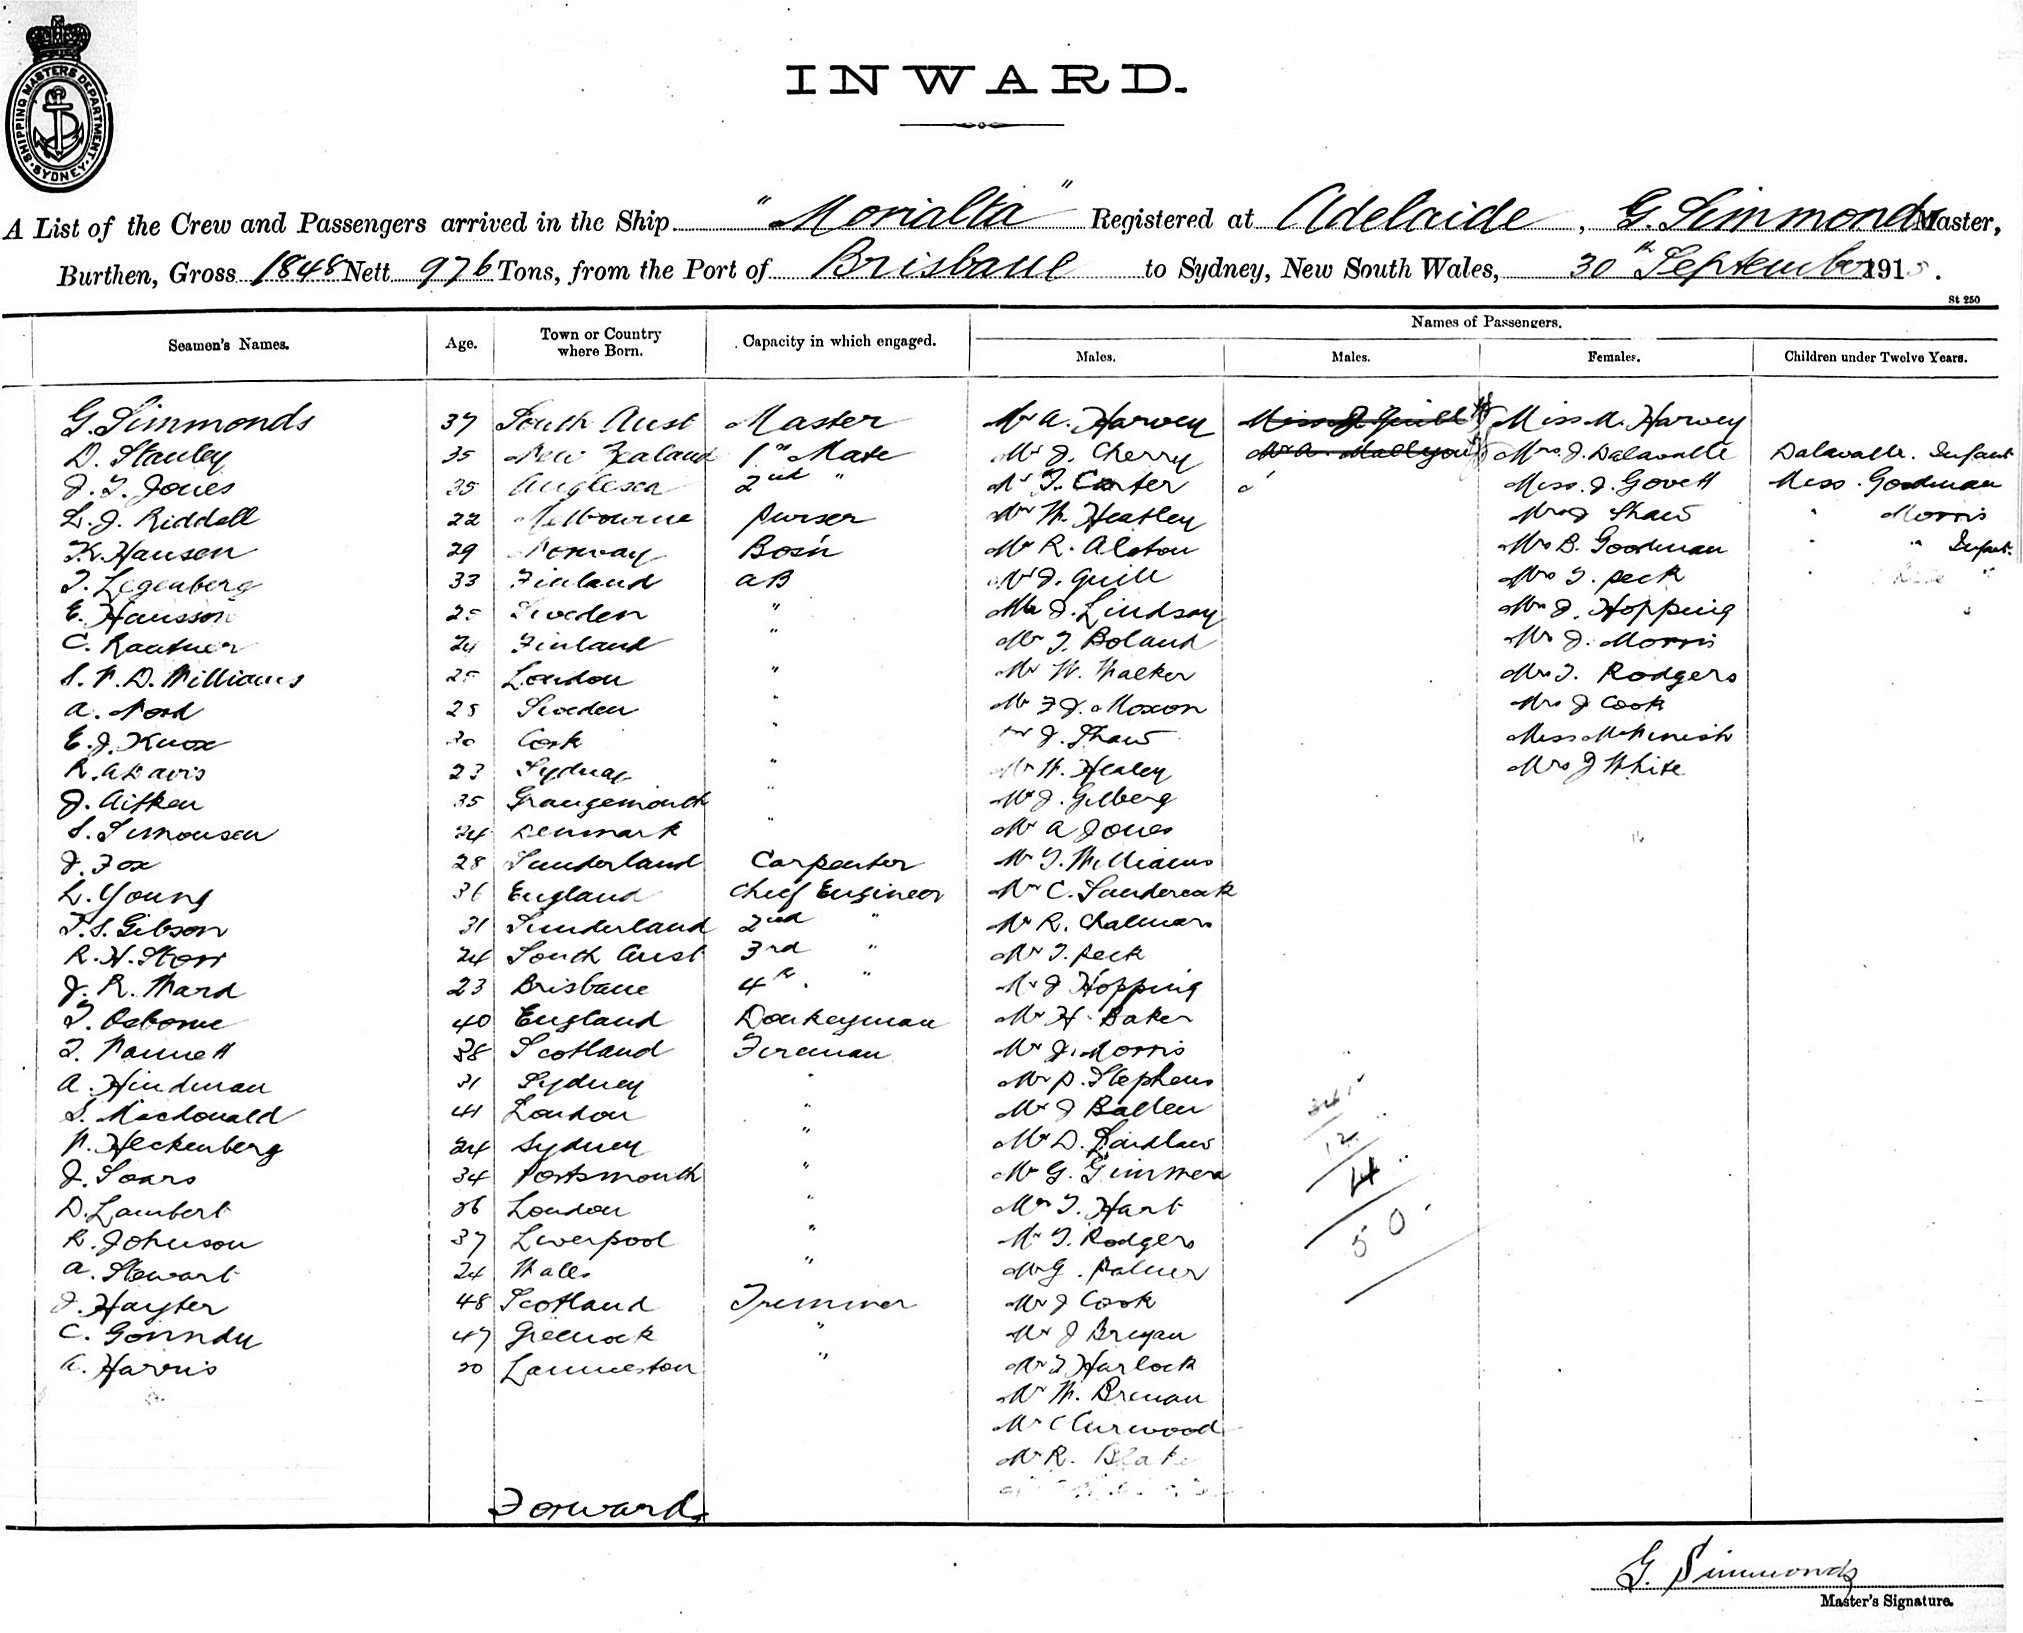 SHIPPING MASTERS DEPARTMENT SYDNEY
INWARD.
A List of the Crew and Passengers arrived in the Ship "Morialta" Registered at Adelaide, G. Simmonds Master,
Burthen, Gross 1848 Nett 976 Tons, from the Port of Brisbane to Sydney, New South Wales, 30th September 1915.
St 250
Names of Passengers.
Seamen's Names. Age. Town or Country where Born. Capacity in which engaged. Males. Males. Females. Children under Twelve Years.
G. Simmonds 37 South Aust Master Mr A. Harvey Miss J Guill Miss M. Harvey
D. Stanley 35 New Zealand 1st Mate Mr J. Cherry Mrs J. Dalavalle Dalavalle. Infant
J. T. Jones 35 Anglesea 2nd " Mr T. Carter Miss. J. Govett Miss. Goodman
L. J. Riddell 22 Melbourne Purser Mr W. Heatley Mrs J Shaw " Morris
K. Hansen 29 Norway Bos'n Mr R. Alston Mrs B. Goodman " " Infant
T. Legenberg 33 Finland AB Mr J. Guill Mrs T. Peck
E. Hansson 25 Sweden " Mr J. Lindsay Mrs J. Hopping
C. Rautner 24 Finland " Mr T. Boland Mrs J. Morris
S. W. D. Williams 25 London " Mr W. Walker Mrs T. Rodgers
A. Nord 25 Sweden " Mr F J. Moxon Mrs J Cook
E. J. Knox 30 Cork " Mr J. Shaw Miss McKinish
R. A Davis 23 Sydney " Mr W. Healey Mrs J White
J. Aitken 35 Grangemouth " Mr J. Gilberg
S. Simonsen 24 Denmark " Mr A Jones
J. Fox 28 Sunderland Carpenter Mr T. Williams
L. Young 36 England Chief Engineer Mr C. Sandercock
T. S. Gibson 31 Sunderland 2nd " Mr R. Chalmers
R. H. Storr 24 South Aust 3rd " Mr T. Peck
J. R. Ward 23 Brisbane 4th " Mr J Hopping
T. Osborne 40 England Donkeyman Mr H. Baker
T. Wannell 38 Scotland Fireman Mr J. Morris
A. Hindman 31 Sydney " Mr P. Stephens
S. Macdonald 41 London " Mr J Ballen
W. Heckenberg 24 Sydney " Mr D. Laidlaw
J. Soars 34 Portsmouth " Mr G.
D. Lambert 36 London " Mr T. Hart
R. Johnson 37 Liverpool " Mr T. Rodgers
A. Stewart 24 Wales " Mr G. Palmer
J. Hayter 48 Scotland Trimmer Mr J Cook
C. 47 Greenock " Mr J Bryan
A. Harris 20 Launceston " Mr T Harlock
Mr W. Brenan
Mr C Curwood
Mr R. Blake
34
12
4
50
Forward
G. Simmonds
Master's Signature.